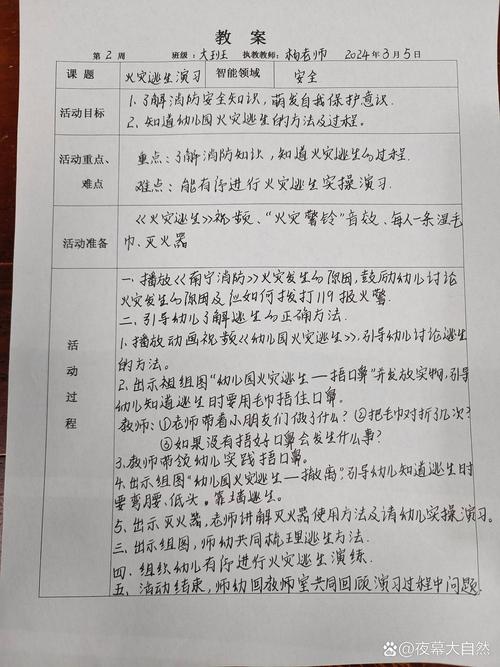 教 案
第 2 周 班级：大班 执教教师：杨老师 2024年3月5日
课 题 火灾逃生演习 智能领域 安全
活动目标
1.了解消防安全知识，萌发自我保护意识.
2.知道幼儿园火灾逃生的方法及过程.
活动重点、
难点
重点：了解消防知识，知道火灾逃生的过程.
难点：能有序进行火灾逃生实操演习.
活动准备
《火灾逃生》视频、“火灾警铃”音效、每人一条湿毛
巾、灭火器
活动过程
一.播放《南宁消防》火灾发生的原因，鼓励幼儿讨论
火灾发生的原因及应如何拨打119报火警.
二、引导幼儿了解逃生的正确方法.
1.播放动画视频《幼儿园火灾逃生》，引导幼儿讨论逃生
的方法。
2.出示组图“幼儿园火灾逃生—捂口鼻”并发放实物，引导
幼儿知道逃生时要用毛巾捂住口鼻。
教师：①老师带着小朋友们做了什么？②把毛巾对折几次？
③如果没有捂好口鼻会发生什么事？
3.教师带领幼儿实践捂口鼻。
4.出示组图“幼儿园火灾逃生—撤离”，引导幼儿知道逃生时
要弯腰、低头。靠墙逃生。
5、出示灭火器，老师讲解灭火器使用方法及请幼儿实操演习。
三.出示组图，师幼共同梳理逃生方法.
四.组织幼儿有序进行火灾逃生演练.
五、活动结束，师幼回教师室共同回顾演习过程中问题.
@夜幕大自然